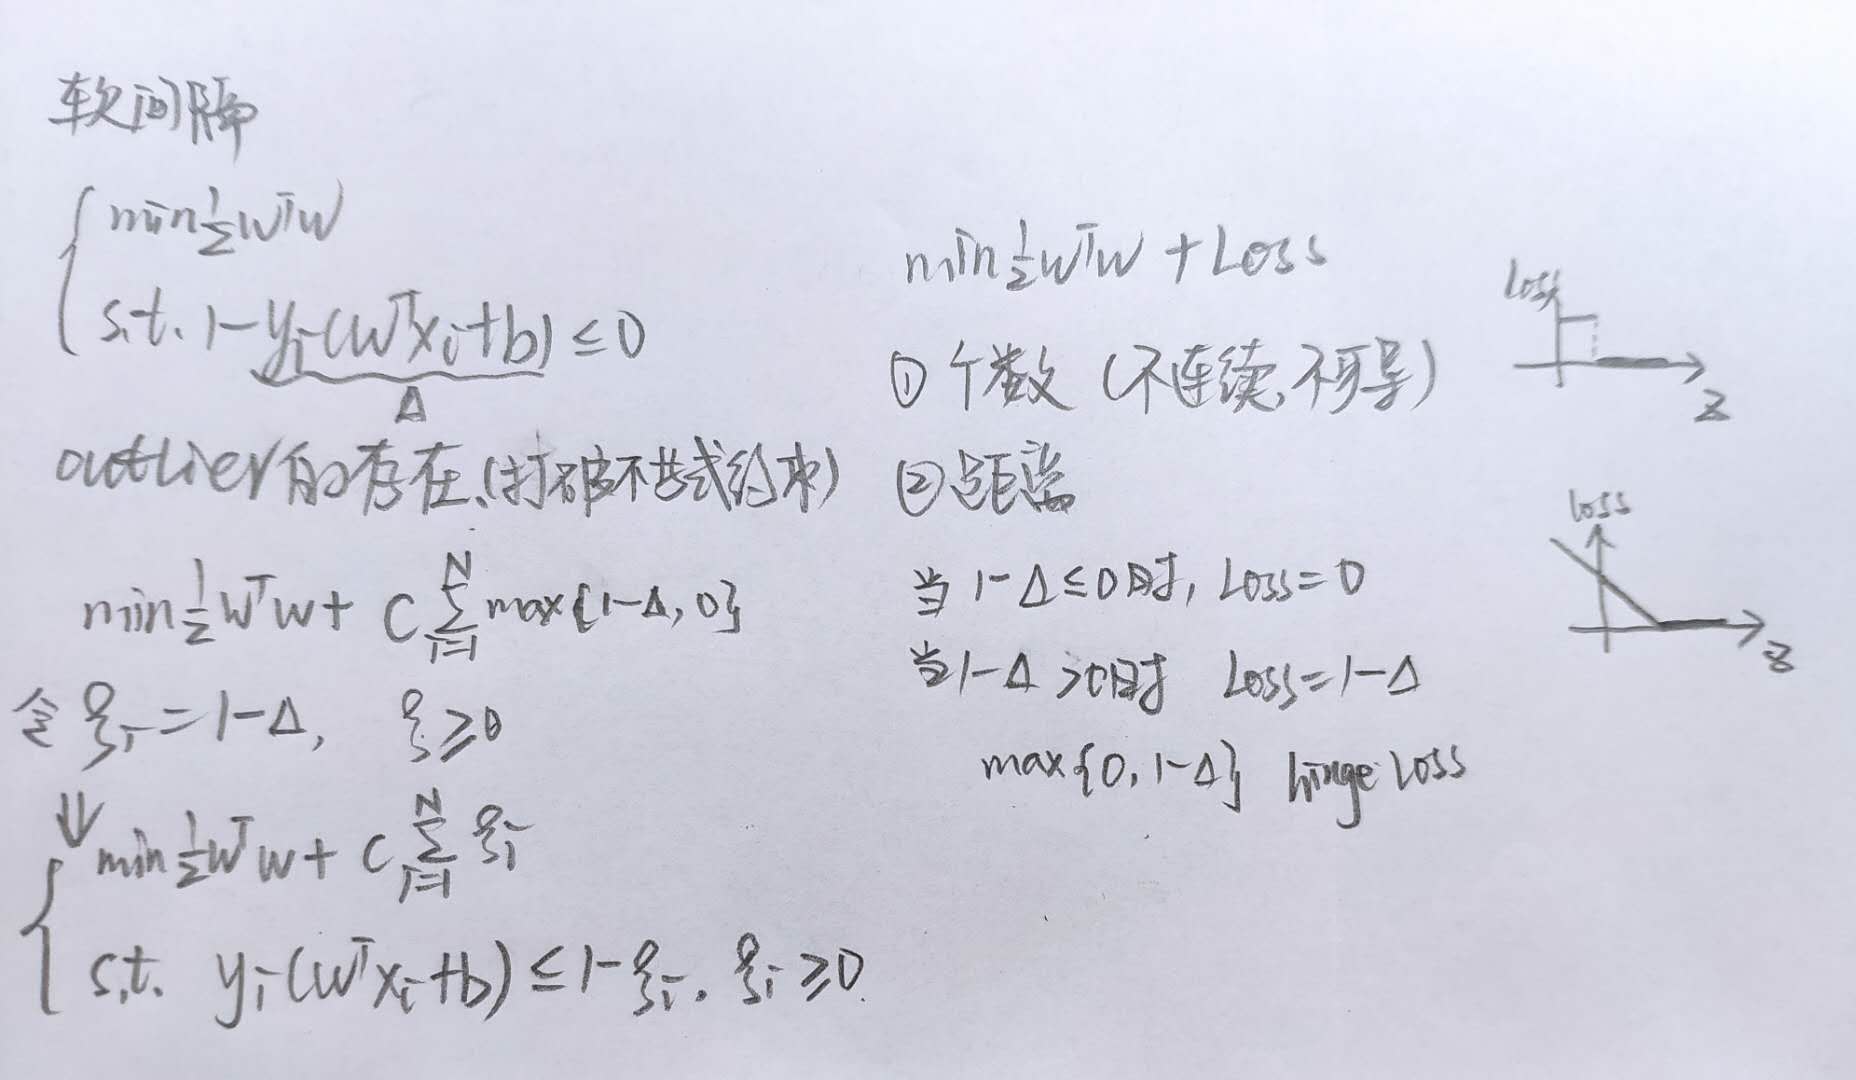 软间隔
min ½ wᵀw
s.t. 1-yᵢ(wᵀxᵢ+b) ≤ 0
Δ
outlier的存在、(打破不等式约束)
min ½ wᵀw + C ∑ᵢ₌₁ᴺ max{1-Δ, 0}
令 ξᵢ = 1-Δ, ξ ≥ 0
⇓ min ½ wᵀw + C ∑ᵢ₌₁ᴺ ξᵢ
s.t. yᵢ(wᵀxᵢ+b) ≤ 1-ξᵢ. ξᵢ ≥ 0.
min ½ wᵀw + Loss
① 个数 (不连续,不可导)
② 距离
当 1-Δ ≤ 0时, Loss = 0
当 1-Δ > 0时 Loss = 1-Δ
max{0, 1-Δ} hinge loss
Loss
z
loss
z